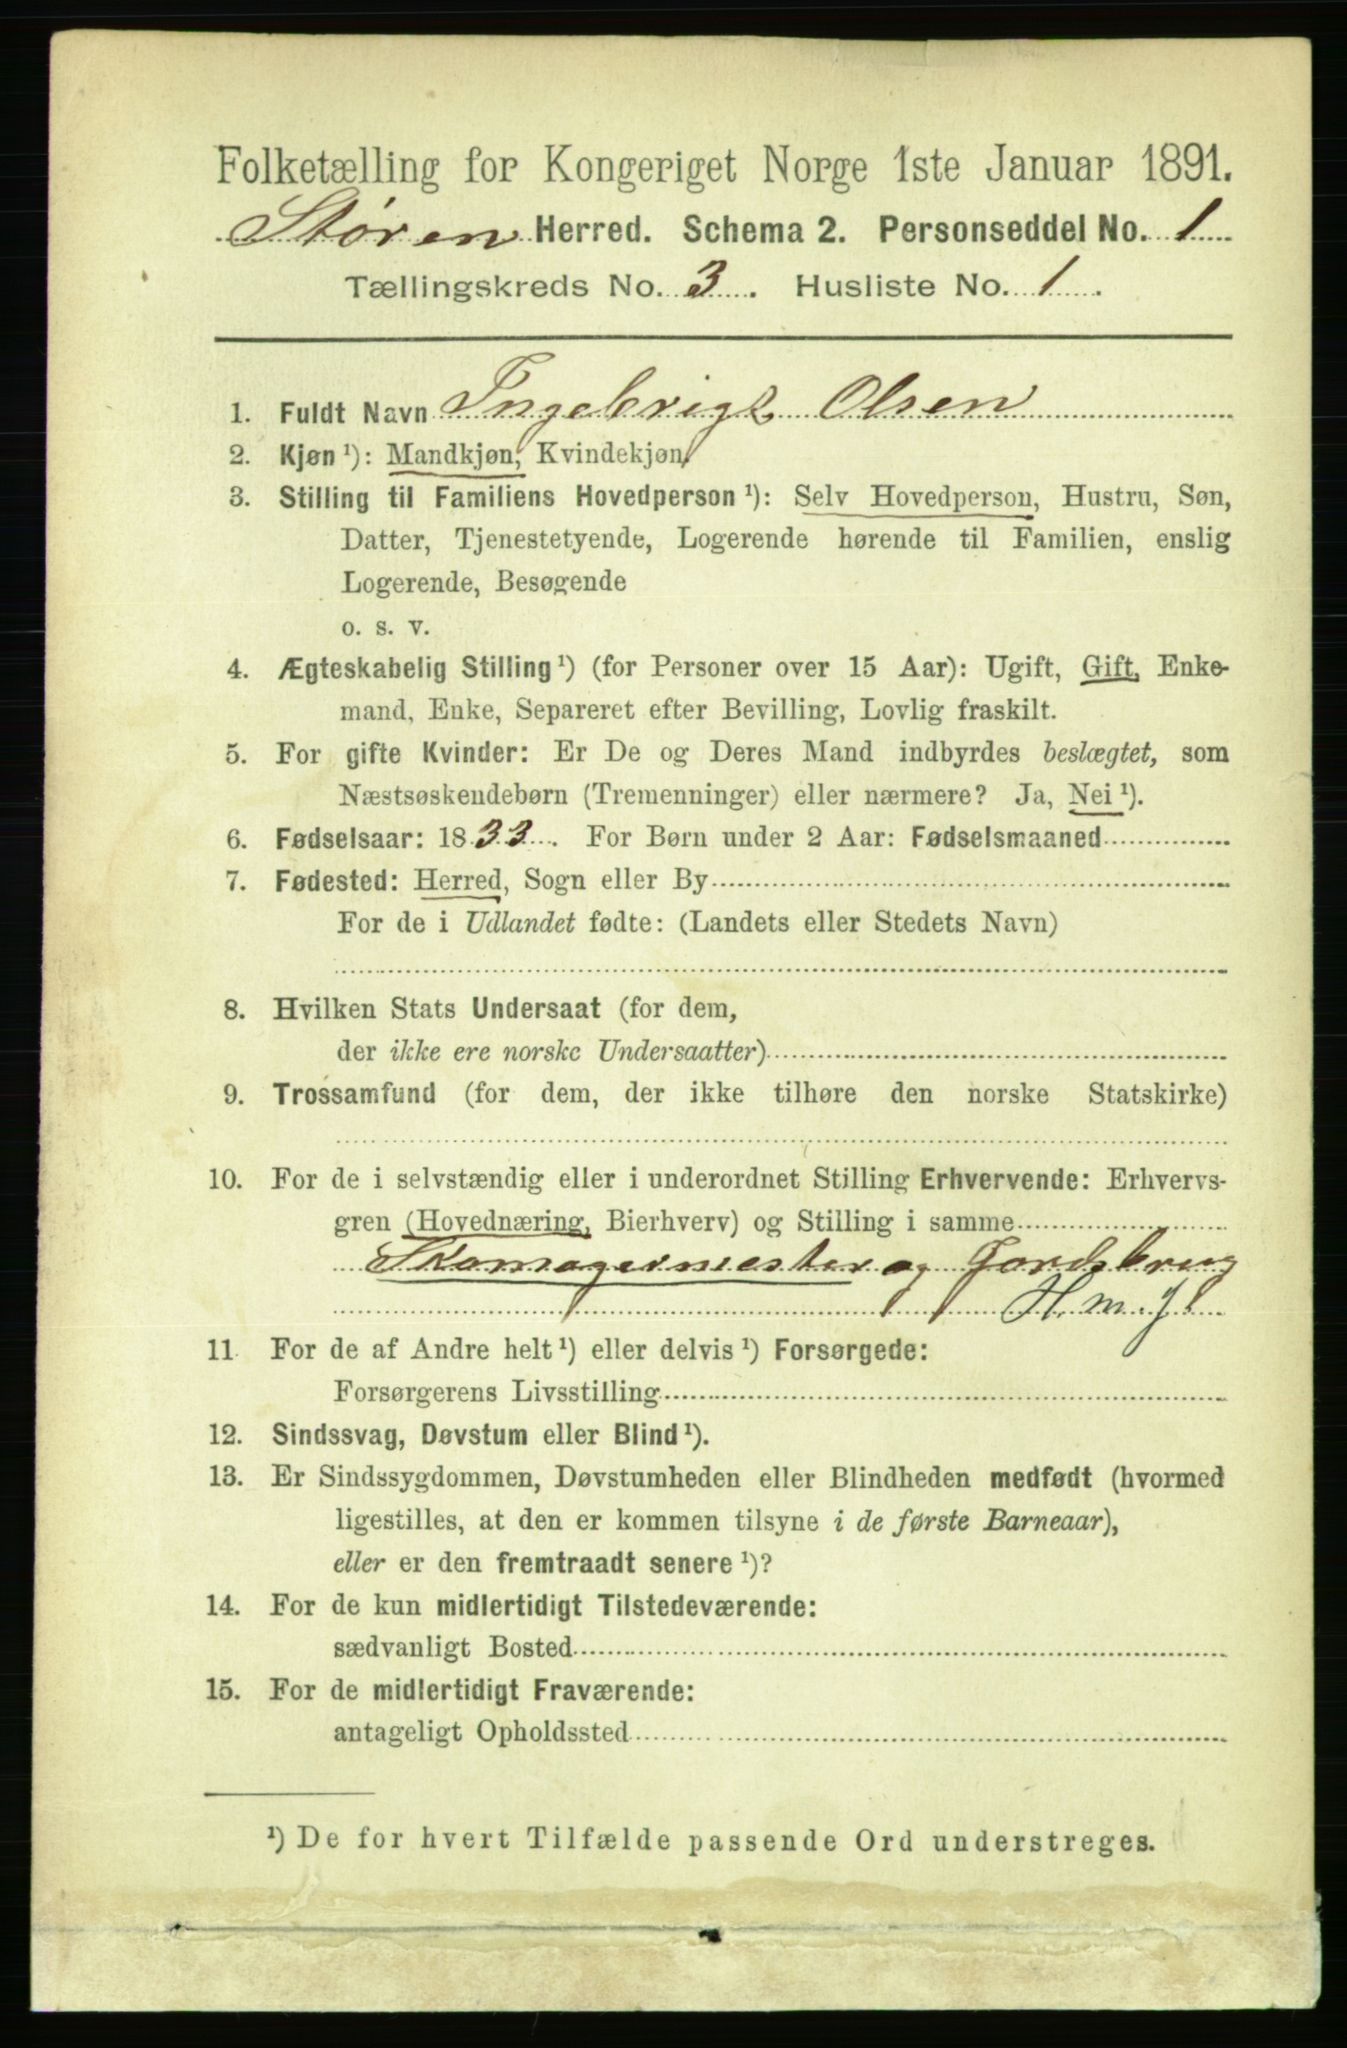 Folketælling for Kongeriget Norge 1ste Januar 1891.
Støren Herred. Schema 2. Personseddel No. 1
Tællingskreds No. 3. Husliste No. 1.
1. Fuldt Navn Ingebrigt Olsen
2. Kjøn ¹): Mandkjøn, Kvindekjøn
3. Stilling til Familiens Hovedperson ¹): Selv Hovedperson, Hustru, Søn,
Datter, Tjenestetyende, Logerende hørende til Familien, enslig
Logerende, Besøgende
o. s. v.
4. Ægteskabelig Stilling ¹) (for Personer over 15 Aar): Ugift, Gift, Enke-
mand, Enke, Separeret efter Bevilling, Lovlig fraskilt.
5. For gifte Kvinder: Er De og Deres Mand indbyrdes beslægtet, som
Næstsøskendebørn (Tremenninger) eller nærmere? Ja, Nei ¹).
6. Fødselsaar: 1833. For Børn under 2 Aar: Fødselsmaaned
7. Fødested: Herred, Sogn eller By
For de i Udlandet fødte: (Landets eller Stedets Navn)
8. Hvilken Stats Undersaat (for dem,
der ikke ere norske Undersaatter)
9. Trossamfund (for dem, der ikke tilhøre den norske Statskirke)
10. For de i selvstændig eller i underordnet Stilling Erhvervende: Erhvervs-
gren (Hovednæring, Bierhverv) og Stilling i samme
Skomagermester og Jordbrug
H. m. J
11 For de af Andre helt ¹) eller delvis ¹) Forsørgede:
Forsørgerens Livsstilling
12. Sindssvag, Døvstum eller Blind ¹).
13. Er Sindssygdommen, Døvstumheden eller Blindheden medfødt (hvormed
ligestilles, at den er kommen tilsyne i de første Barneaar),
eller er den fremtraadt senere ¹)?
14. For de kun midlertidigt Tilstedeværende:
sædvanligt Bosted
15. For de midlertidigt Fraværende:
antageligt Opholdssted
¹) De for hvert Tilfælde passende Ord understreges.